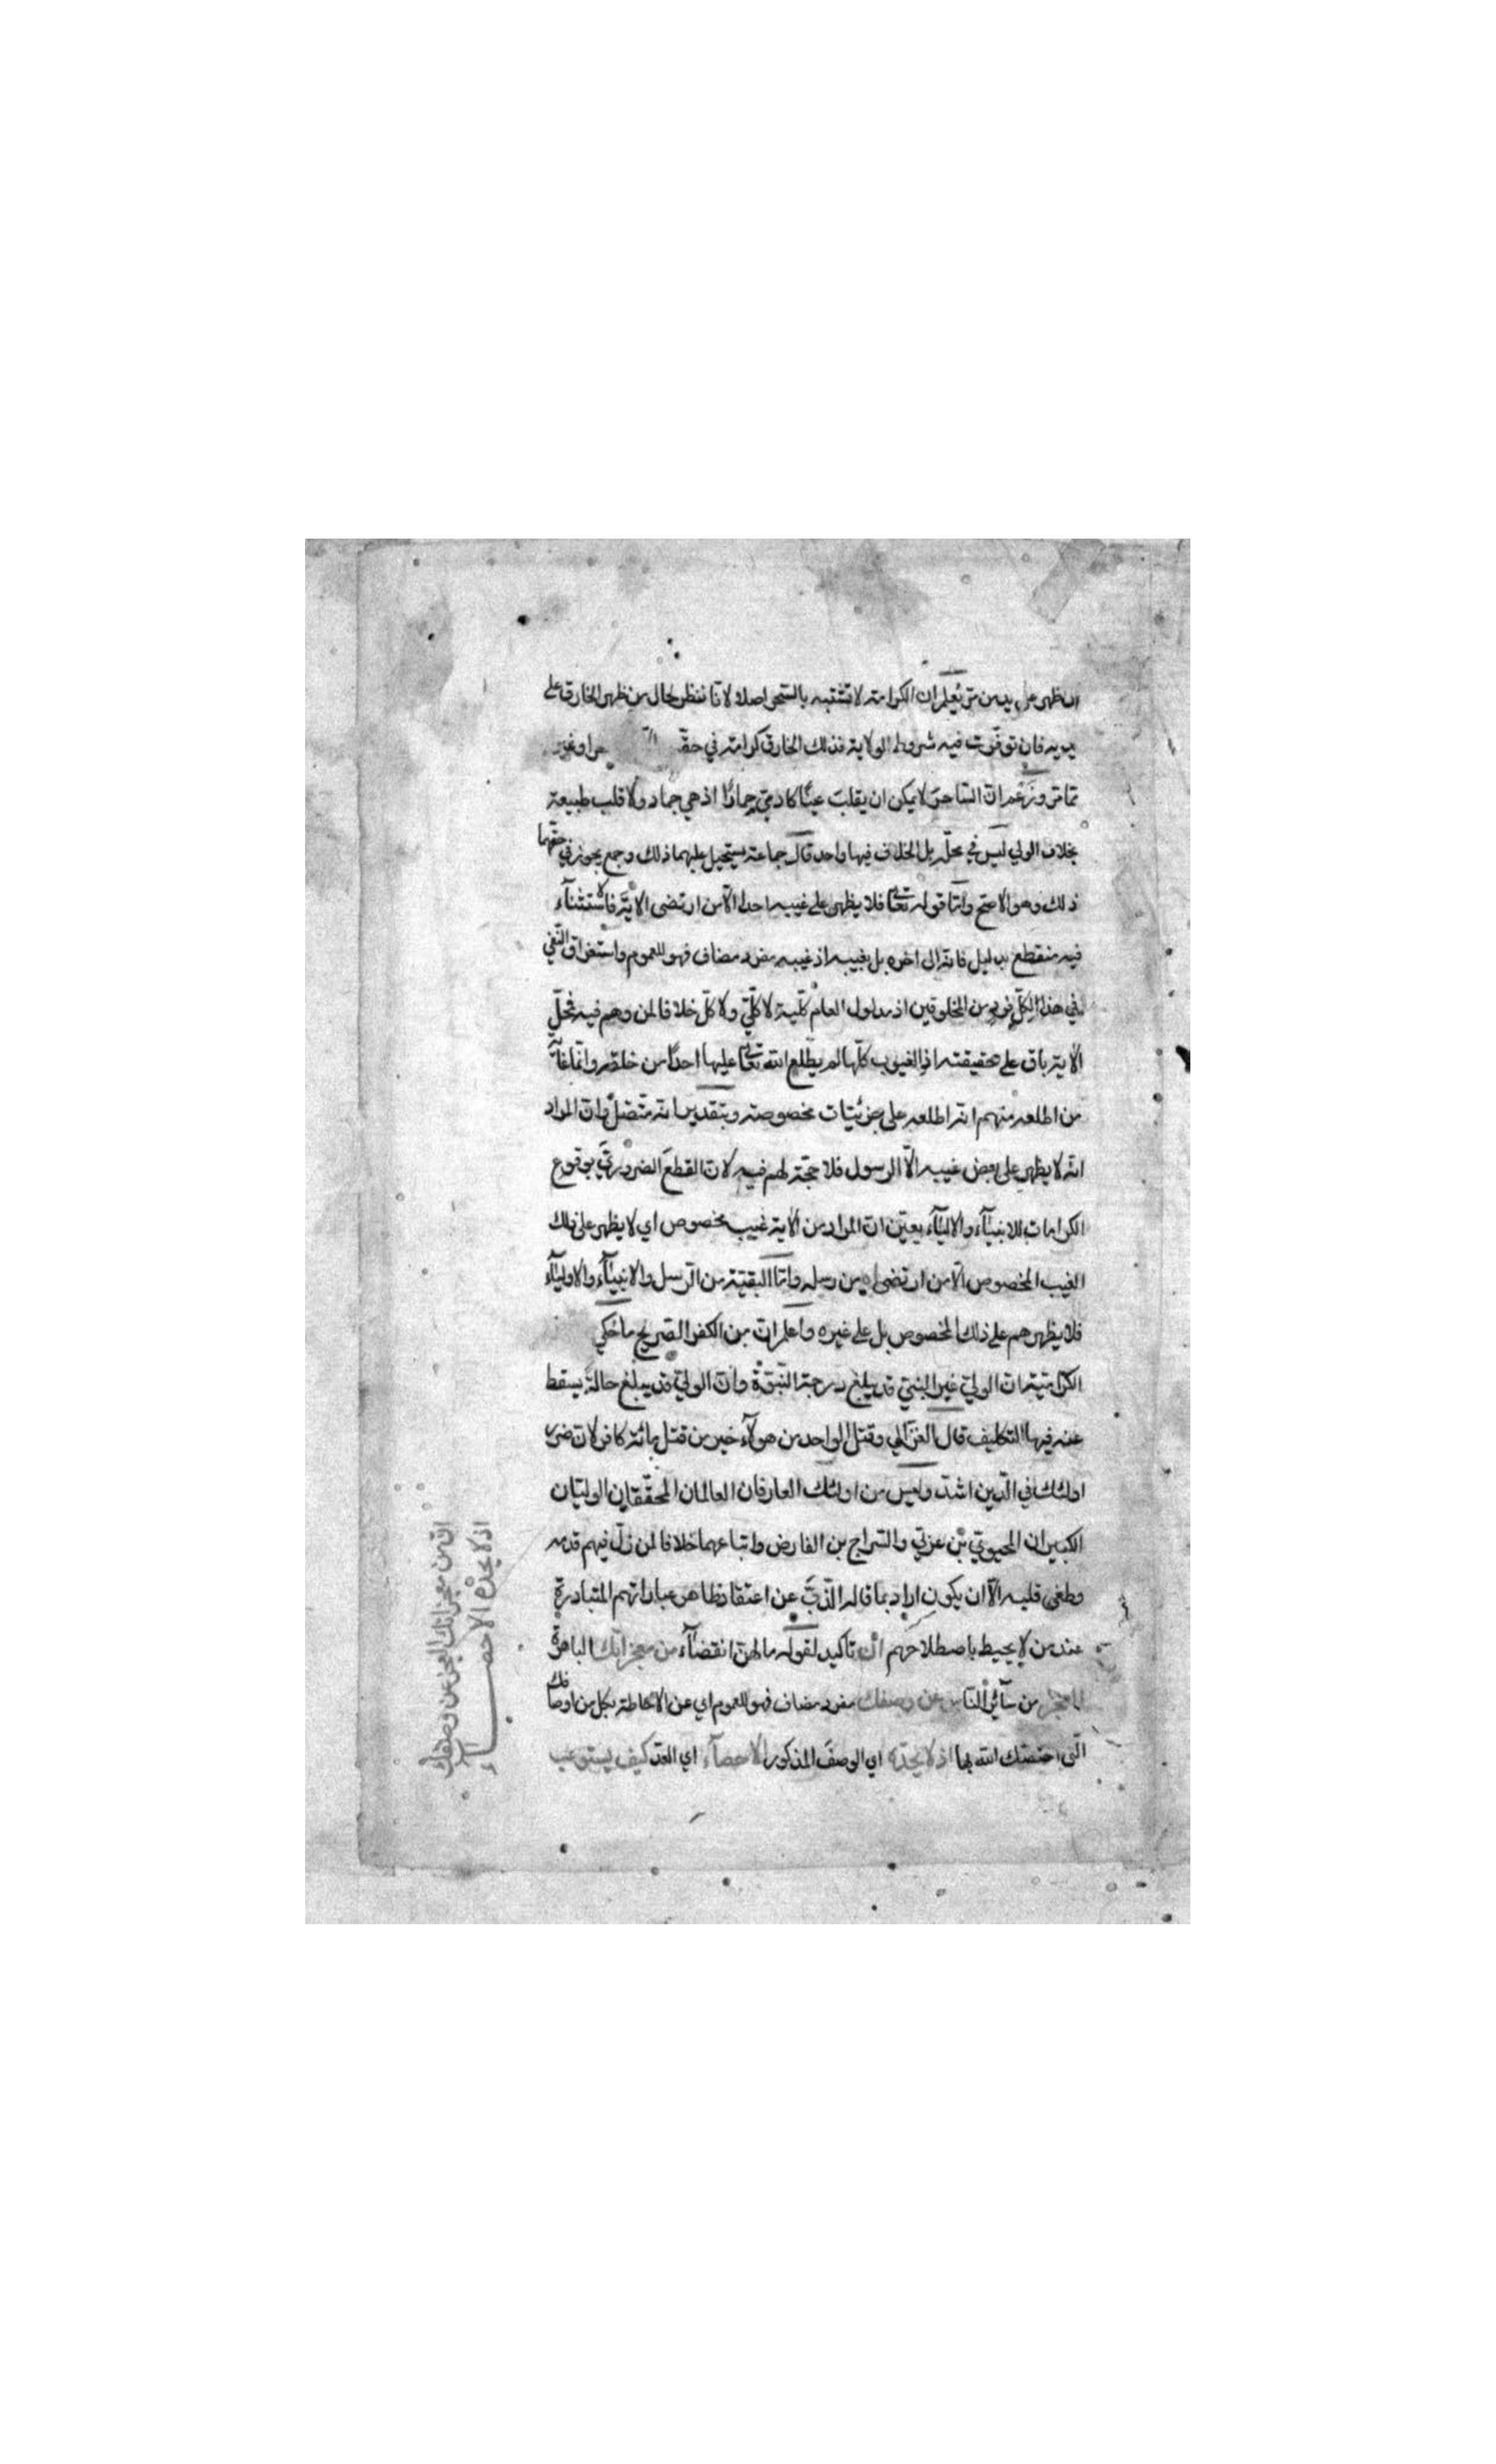 ان ظهر على يدين ثم يعلم ان الكرامة لا تشتبه بالسحر اصلا لانا ننظر لحال من ظهر الخارق على
يديه فان توفرت فيه شروط الولاية فذلك الخارق كرامة في حقه
تماثر وزعم ان الساحر لا يمكن ان يقلب عينا كادمي جمادا اذ هي جماد ولا قلب طبيعة
بخلاف الولي ليس في محله بل الخلاف فيها واحد قال جماعة يستحيل عليهما ذلك وجمع يجوز في حقهما
ذلك وهو الاصح واما قوله تعالى فلا يظهر على غيبه احدا الا من ارتضى الاية فاستثناء
فيه منقطع بدليل فانه الى اخره بل بغيبه اذ غيبه مفرد مضاف فهو للعموم واستغراق النفي
في هذا لكل فرد من المخلوقين اذ مدلول العام كلية لا كلي ولا كل خلافا لمن وهم فيه فحل
الاية باق على حقيقته اذ الغيوب كلها لم يطلع الله تعالى عليها احدا من خلقه وانما غاية
من اطلعه منهم انه اطلعه على جزئيات مخصوصة وبتقدير انه متصل وان المراد
انه لا يظهر على بعض غيبه الا الرسول فلا حجة لهم فيه لان القطع الضروري بوقوع
الكرامات للانبيآء والاليآء يعين ان المراد من الاية غيب مخصوص اي لا يظهر على ذلك
الغيب المخصوص الا من ارتضى من رسله واما البقية من الرسل والانبيآء والاوليآء
فلا يظهرهم على ذلك المخصوص بل على غيره واعلم ان من الكفر الصريح ما حكي
الكرامية ان الولي غير النبي قد يبلغ درجة النبوة وان الولي قد يبلغ حالة يسقط
عنه فيها التكليف قال الغزالي وقتل الواحد من هولآء خير من قتل مائة كافر لان ضرر
اولئك في الدين اشد وليس من اولئك العارفان العالمان المحققان الوليان
الكبيران المحيوي بن عربي والسراج بن الفارض واتباعهما خلافا لمن زل فيهم قدمه
وطغى قلبه الا ان يكون اراد بما قاله الذب عن اعتقاد ظاهر عباراتهم المتبادرة
عند من لا يحيط باصطلاحهم ان تاكيد لقوله ما لهن انقضآء من معجزاتك الباهرة
العجز من سائر الناس عن وصفك مفرد مضاف فهو للعموم اي عن الاحاطة بكل من اوصافك
التى اختصك الله بها اذ لا يحده اي الوصف المذكور الاحصآء اي العد كيف يستوعب
ان من معجزاتك العجز عن وصفك
اذ لا يحده الاحصاء